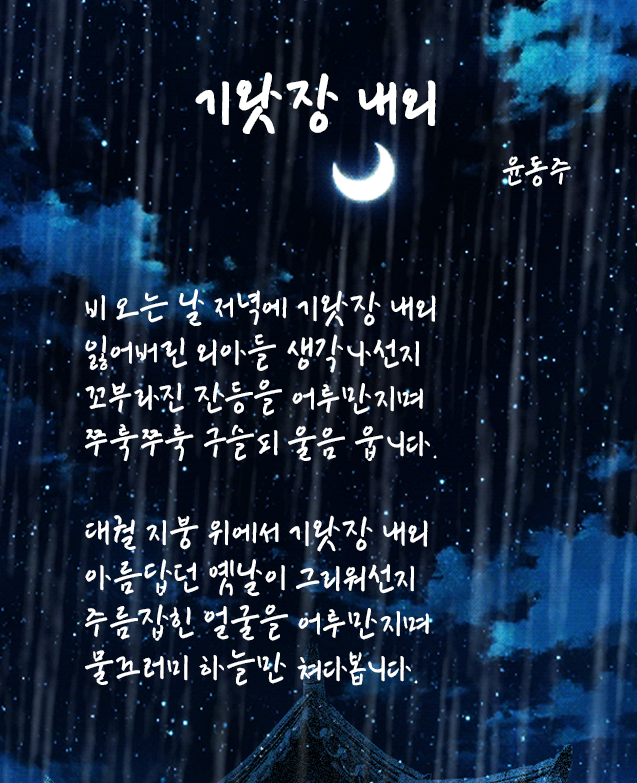 기왓장 내외
윤동주
비 오는 날 저녁에 기왓장 내외
잃어버린 외아들 생각나선지
꼬부라진 잔등을 어루만지며
쭈룩쭈룩 구슬피 울음 웁니다.
대궐 지붕 위에서 기왓장 내외
아름답던 옛날이 그리워선지
주름잡힌 얼굴을 어루만지며
물끄러미 하늘만 쳐다봅니다.